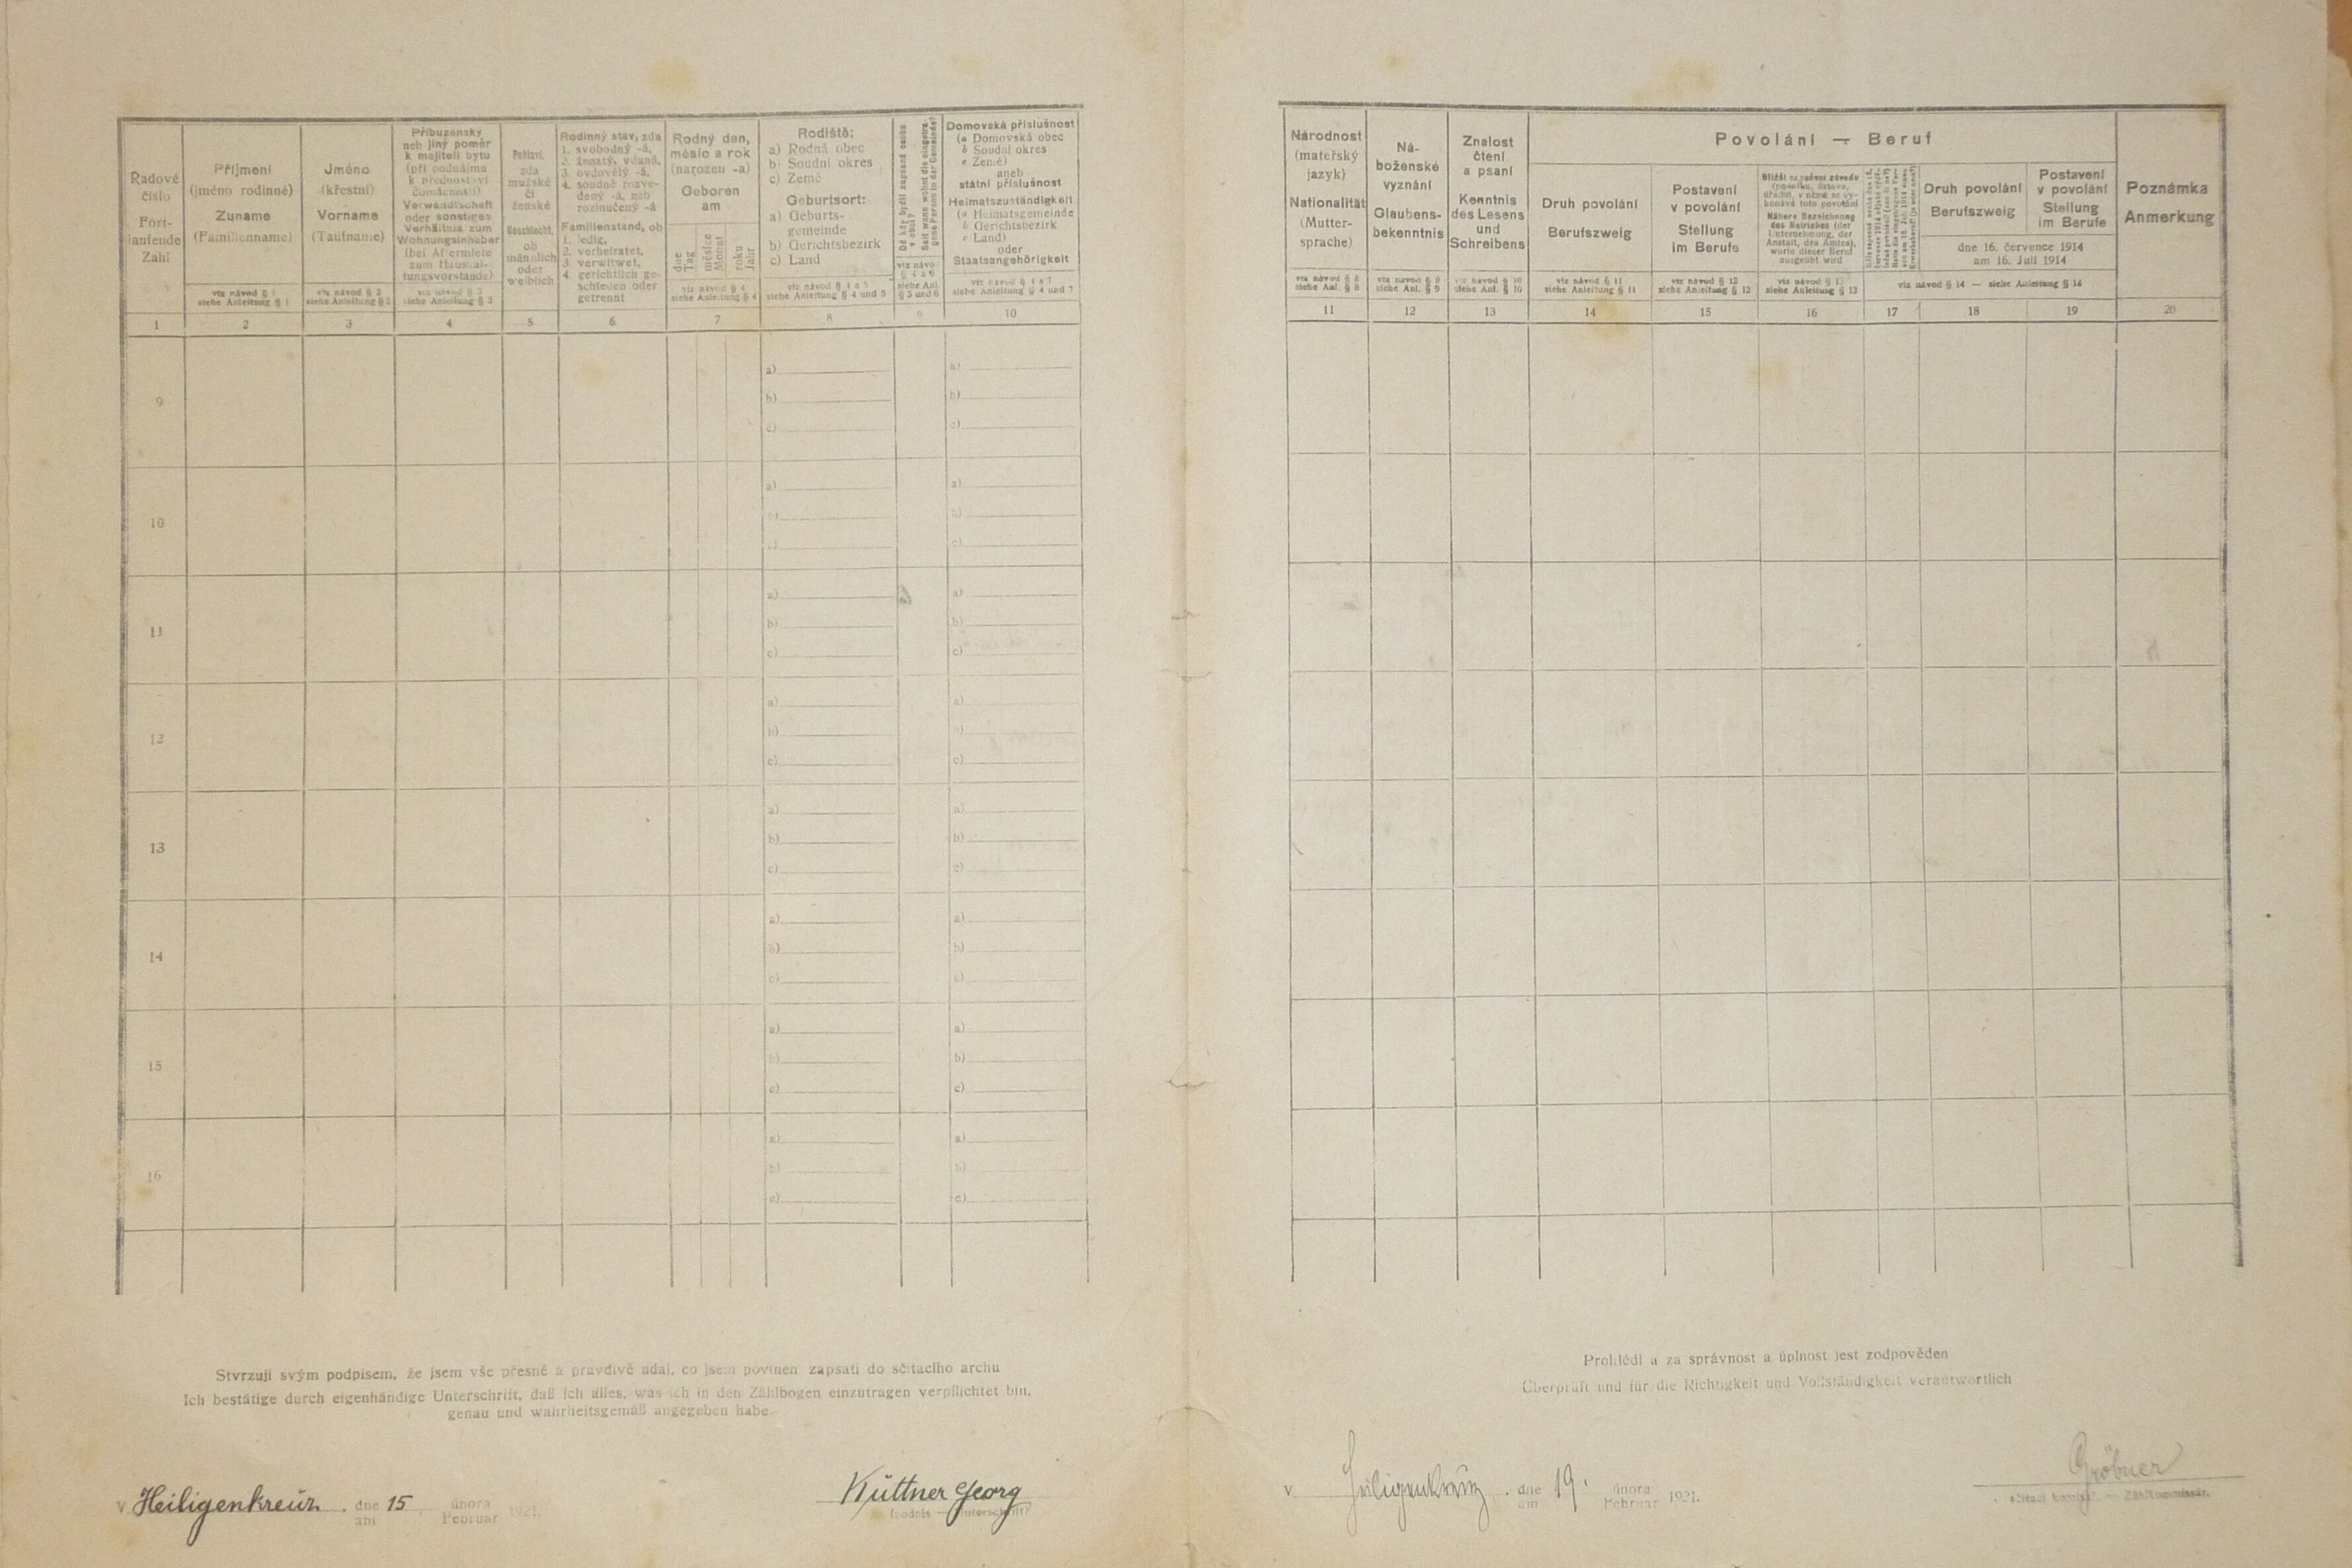 Radové
číslo
Fort-
laufende
Zahl
1
Příjmení
(jméno rodinné)
Zuname
(Familienname)
viz návod § 1
siehe Anleitung § 1
2
Jméno
(křestní)
Vorname
(Taufname)
viz návod § 2
siehe Anleitung § 2
3
Příbuzenský
neb jiný poměr
k majiteli bytu
(při podnájmu
k přednostovi
domácnosti)
Verwandtschaft
oder sonstiges
Verhältnis zum
Wohnungsinhaber
(bei Aftermiete
zum Haushal-
tungsvorstande)
viz návod § 3
siehe Anleitung § 3
4
Pohlaví,
zda
mužské
či
ženské
Geschlecht,
ob
männlich
oder
weiblich
5
Rodinný stav, zda
1. svobodný -á,
2. ženatý, vdaná,
3. ovdovělý -á,
4. soudně rozve-
dený -á, neb
rozloučený -á
Familienstand, ob
1. ledig,
2. verheiratet,
3. verwitwet,
4. gerichtlich ge-
schieden oder
getrennt
6
Rodný den,
měsíc a rok
(narozen -a)
Geboren
am
dne
Tag
měsíce
Monat
roku
Jahr
viz návod § 4
siehe Anleitung § 4
7
Rodiště:
a) Rodná obec
b) Soudní okres
c) Země
Geburtsort:
a) Geburts-
gemeinde
b) Gerichtsbezirk
c) Land
viz návod § 4 a 5
siehe Anleitung § 4 und 5
8
Od kdy bydlí zapsaná osoba
v obci?
Seit wann wohnt die eingetra-
gene Person in der Gemeinde?
viz návod
§ 4 a 6
siehe Anl.
§ 5 und 6
9
Domovská příslušnost
(a Domovská obec
b Soudní okres
c Země)
aneb
státní příslušnost
Heimatszuständigkeit
(a Heimatsgemeinde
b Gerichtsbezirk
c Land)
oder
Staatsangehörigkeit
viz návod § 4 a 7
siehe Anleitung § 4 und 7
10
Národnost
(mateřský
jazyk)
Nationalität
(Mutter-
sprache)
viz návod § 8
siehe Anl. § 8
11
Ná-
boženské
vyznání
Glaubens-
bekenntnis
viz návod § 9
siehe Anl. § 9
12
Znalost
čtení
a psaní
Kenntnis
des Lesens
und
Schreibens
viz návod § 10
siehe Anl. § 10
13
Povolání — Beruf
Druh povolání
Berufszweig
viz návod § 11
siehe Anleitung § 11
14
Postavení
v povolání
Stellung
im Berufe
viz návod § 12
siehe Anleitung § 12
15
Bližší označení závodu
(podniku, ústavu,
úřadu), v němž se vy-
konává toto povolání
Nähere Bezeichnung
des Betriebes (der
Unternehmung, der
Anstalt, des Amtes),
worin dieser Beruf
ausgeübt wird
viz návod § 13
siehe Anleitung § 13
16
17
Druh povolání
Berufszweig
Postavení
v povolání
Stellung
im Berufe
dne 16. července 1914
am 16. Juli 1914
viz návod § 14 — siehe Anleitung § 14
18
19
Poznámka
Anmerkung
20
9
a)
b)
c)
a)
b)
c)
10
a)
b)
c)
a)
b)
c)
11
a)
b)
c)
a)
b)
c)
12
a)
b)
c)
a)
b)
c)
13
a)
b)
c)
a)
b)
c)
14
a)
b)
c)
a)
b)
c)
15
a)
b)
c)
a)
b)
c)
16
a)
b)
c)
a)
b)
c)
Stvrzuji svým podpisem, že jsem vše přesně a pravdivě udal, co jsem povinen zapsati do sčítacího archu
Ich bestätige durch eigenhändige Unterschrift, daß ich alles, was ich in den Zählbogen einzutragen verpflichtet bin,
genau und wahrheitsgemäß angegeben habe
V Heiligenkreuz. dne 15 února 1921.
am Februar
Küttner Georg
(podpis — Unterschrift)
Prohlédl a za správnost a úplnost jest zodpověden
Überprüft und für die Richtigkeit und Vollständigkeit verantwortlich
V Heiligenkreuz. dne 19. února 1921.
am Februar
Gröbner
sčítací komisař. — Zählkommissär.